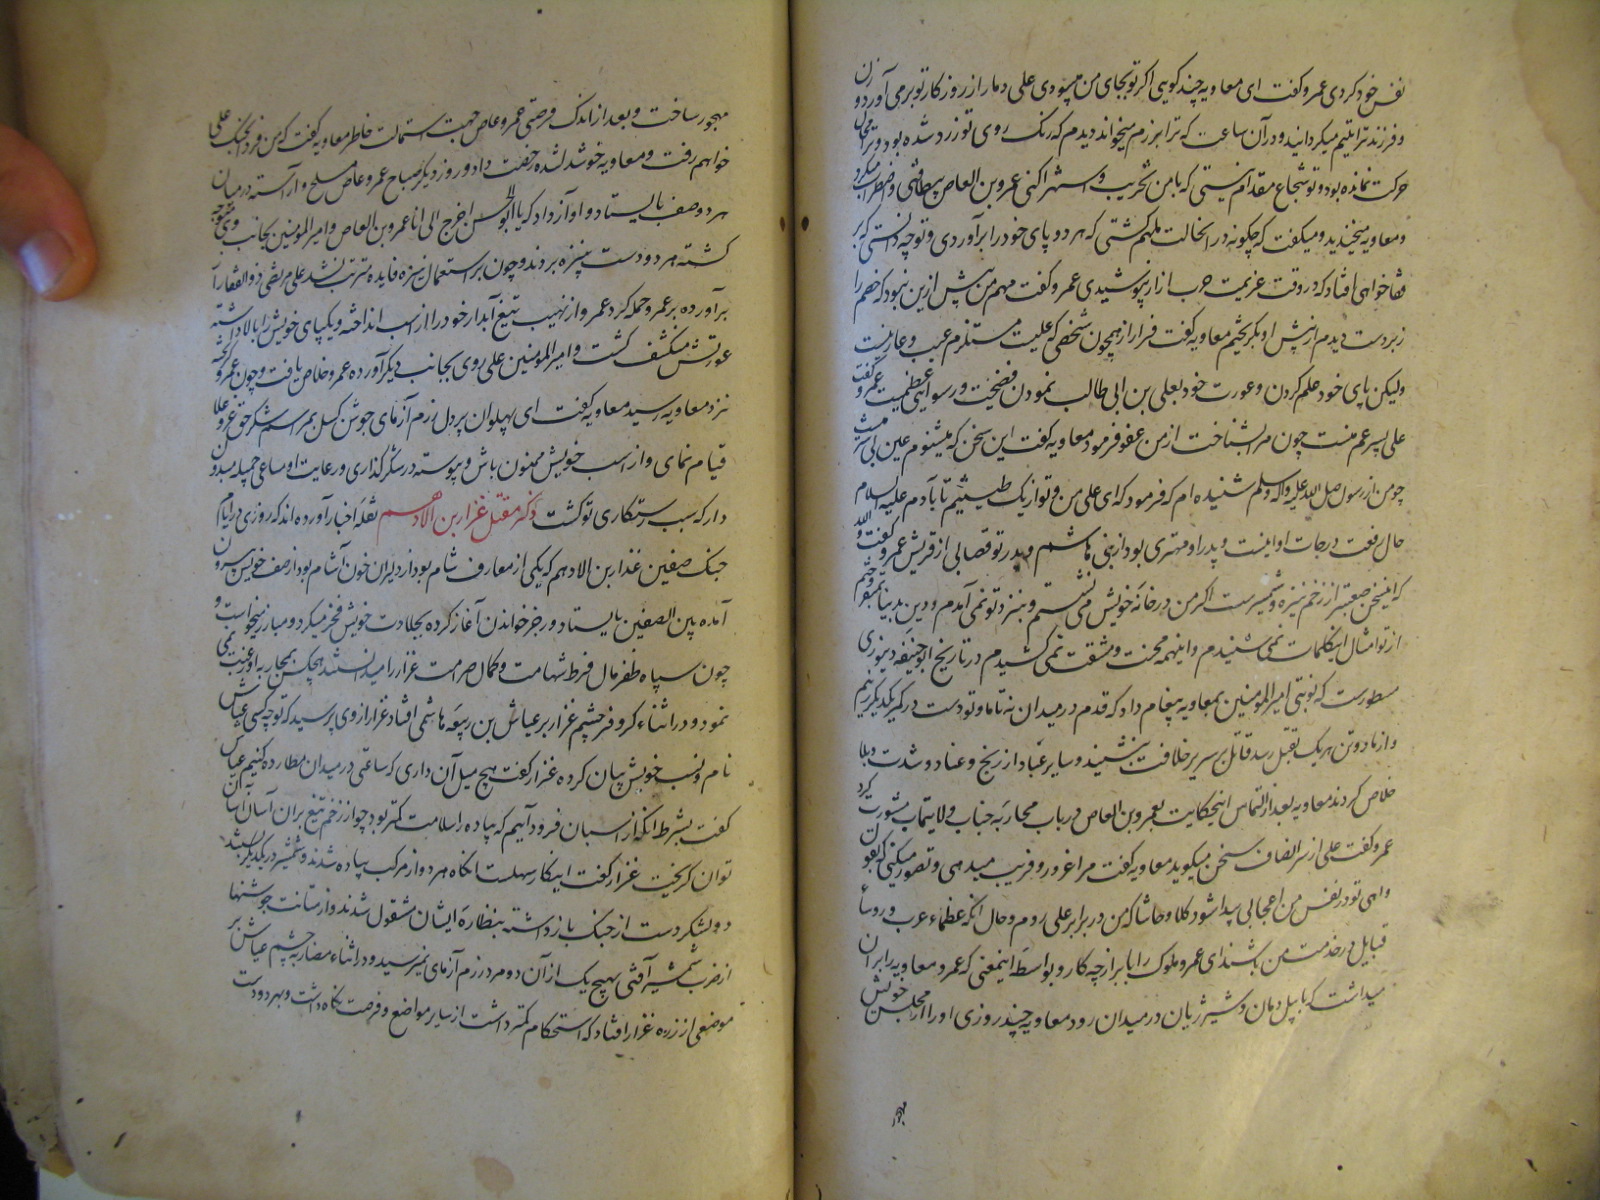 نفس خود کردی عمرو کفت ای معاویه چند کویی اکر تو بجای من میبودی علی دمار از روزکار تو برمی آورد و زن
و فرزند ترا یتیم میکردانید و در آن ساعت که ترا برزم میخواند دیدم که رنک روی تو زرد شده بود و ترا مجال
حرکت نمانده بود و تو شجاع مقدام نیستی که با من تخریب و استهزا کنی عمرو بن العاص بیطاقتی و اضطراب میکرد
و معاویه میخندید و میکفت که چکونه در انحالت ملهم کشتی که هر دو پای خود را برآوردی و تو چه دانستی که بر
قفا خواهی افتاد که در وقت عزیمت حرب ازار نپوشیدی عمرو کفت مهم من پیش ازین نبود که خصم را
زبردست دیدم از پیش او بکریختم معاویه کفت فرار از همچون شخصی که علیست مستلزم عیب و عار نیست
ولیکن پای خود علم کردن و عورت خود بعلی بن ابی طالب نمودن فضیحت و رسوایی عظیمست عمرو کفت
علی پسر عم منست چون مرا بشناخت از من عفو فرمود معاویه کفت این سخن که میشنوم عین بی شرمیست
چو من از رسول صلی الله علیه وآله وسلم شنیده ام که فرمود که ای علی من و تو از یک طینتیم تا بآدم علیه السلام
حال رفعت درجات او اینست و پدر او مهتری بود از بنی هاشم و پدر تو قصابی از قریش عمرو کفت والله
که این سخن صعبتر از زخم نیزه و شمشیرست اکر من در خانهٔ خویش می نشستم و بنزد تو نمی آمدم و دین بدنیا نمیفروختم
از تو امثال اینکلمات نمی شنیدم و اینهمه محنت و مشقت نمی کشیدم در تاریخ ابو حنیفه دینوری
مسطورست که نوبتی امیر المومنین بمعاویه پیغام داد که قدم در میدان نه تا ما و تو دست در کمر یکدیکر زنیم
و از ما دو تن هر یک بقتل رسد قاتل بر سریر خلافت بنشیند و سایر عباد از رنج و عناد و شدت و بلا
خلاص کردند معاویه بعد از التماس اینحکایت بعمرو بن العاص در باب محاربه جناب ولایتماب مشورت کرد
عمرو کفت علی از سر انصاف سخن میکوید معاویه کفت مرا غرور و فریب میدهی و تصور میکنی که بقول
واهی تو در نفس من اعجابی پیدا شود کلا و حاشا که من در برابر علی روم و حال انکه عظماء عرب و روسأ
قبایل در خدمت من باشند ای عمرو ملوک را با براز چه کار و بواسطهٔ اینمعنی که عمرو معاویه را بران
میداشت که با پیل دمان و شیر ژیان در میدان رود معاویه چند روزی او را از مجلس خویش
مهجور
مهجور ساخت و بعد از اندک فرصتی عمرو عاص جهت استمالت خاطر معاویه کفت که من فردا بجنک علی
خواهم رفت و معاویه خوشدل شده رخصت داد و روز دیکر صباح عمرو عاص مسلح و آراسته در میان
هر دو صف بایستاد و آواز داد که یا ابا الحسن اخرج الی انا عمرو بن العاص و امیر المومنین بجانب وی متوجه
کشته هر دو دست بنیزه بردند و چون بر استعمال نیزه فایده مترتب نشد علی مرتضی ذو الفقار را
برآورده بر عمرو حمله کرد عمرو از نهیب تیغ آبدار خود را از اسب انداخته و یکپای خویش را بالا داشته
عورتش منکشف کشت و امیر المومنین علی روی بجانب دیکر آورده عمرو خلاص یافت و چون عمرو کریخته
نزد معاویه رسید معاویه کفت ای پهلوان پردل رزم آزمای جوشن کسل بمراسم شکر حق عز و علا
قیام نمای و از اسب خویش ممنون باش و پیوسته در شکر کذاری و رعایت او مساعی جمیله مبذول
دار که سبب رستکاری تو کشت ذکر مقتل غزار بن الادهم نقلهٔ اخبار آورده اند که روزی در ایام
جنک صفین غذار بن الادهم که یکی از معارف شام بود از دلیران خون آشام بود از صف خویش بیرون
آمده بین الصفین بایستاد و رجز خواندن آغاز کرده بجلادت خویش فخر میکرد و مبارز میخواست و
چون سپاه ظفر مال فرط شهامت و کمال صرامت غزار را میدانستند هیچکس بمحاربه او رغبت نمی
نمود و در اثناء کر و فر چشم غزار بر عباش بن ربیعه هاشمی افتاد غزار از وی پرسید که تو چه کسی عباش
نام و نسب خویش بیان کرده غزار کفت هیچ میل آن داری که ساعتی در میدان مطارده کنیم عباس
کفت بشرط انکه از اسبان فرود آییم که پیاده را سلامت کمتر بود چو از زخم تیغ بران آسان آسان
توان کریخت غزار کفت اینکار سهلست انکاه هر دو از مرکب پیاده شدند و شمشیر در یکدیکر
دو لشکر دست از جنک بازداشته بنظارهٔ ایشان مشغول شدند و از متانت جوشنها
از ضرب شمشیر آفتی بهیچ یک از آن دو مرد رزم آزمای نمیرسید و در اثناء مضاربه چشم عباش بر
موضعی از زره غزار افتاد که استحکام کمتر داشت از سایر مواضع و فرصت نکاه داشت و بهر دو دست